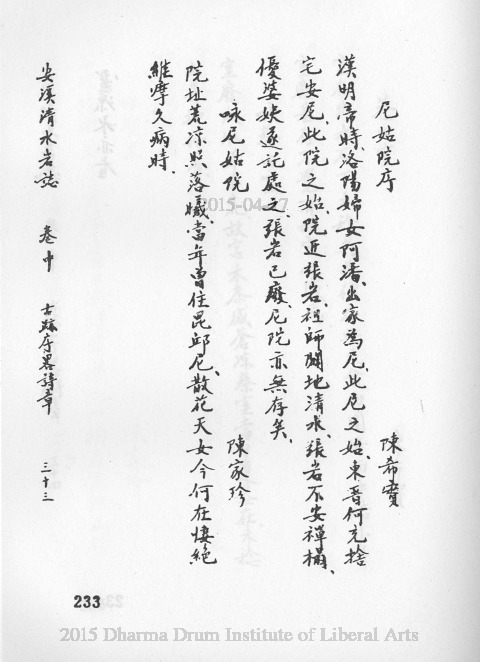 尼姑院序
陳希實
漢明帝時、洛陽婦女阿潘、出家為尼、此尼之始、東晉何充捨
宅安尼、此院之始、院近張岩、祖師闢地清水、張岩不安禪榻、
優婆姨遂託處之、張岩已廢、尼院亦無存矣、
咏尼姑院
陳家珍
院址荒凉照落曦、當年曾住毘邱尼、散花天女今何在悽絕
維摩久病時、
安溪清水岩誌　卷中　古跡序畧詩章　三十三
233
2015-04-27
2015 Dharma Drum Institute of Liberal Arts